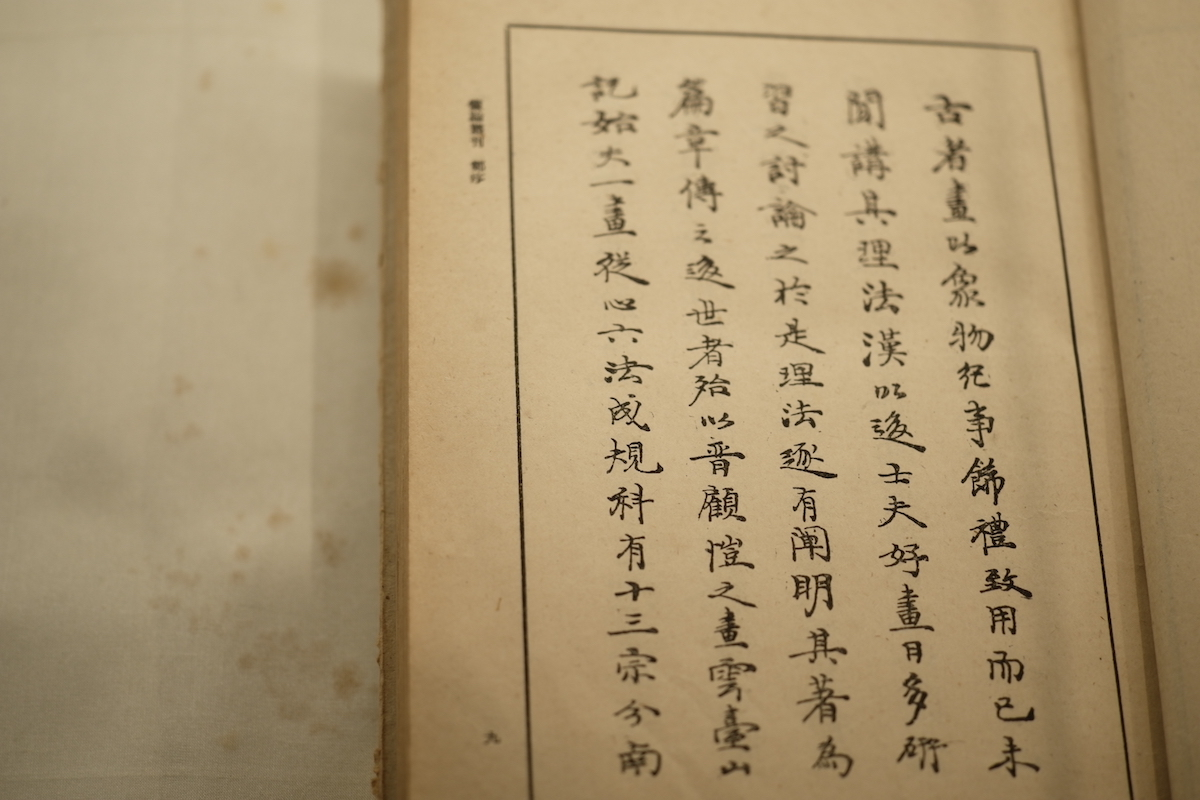 古者畫以象物紀事飾禮致用而已未
聞講其理法漢以後士夫好畫日多研
習之討論之於是理法逐有阐明其著為
篇章傳之後世者殆以晋顧愷之畫雲臺山
記始夫一畫從心六法成規科有十三宗分南
九